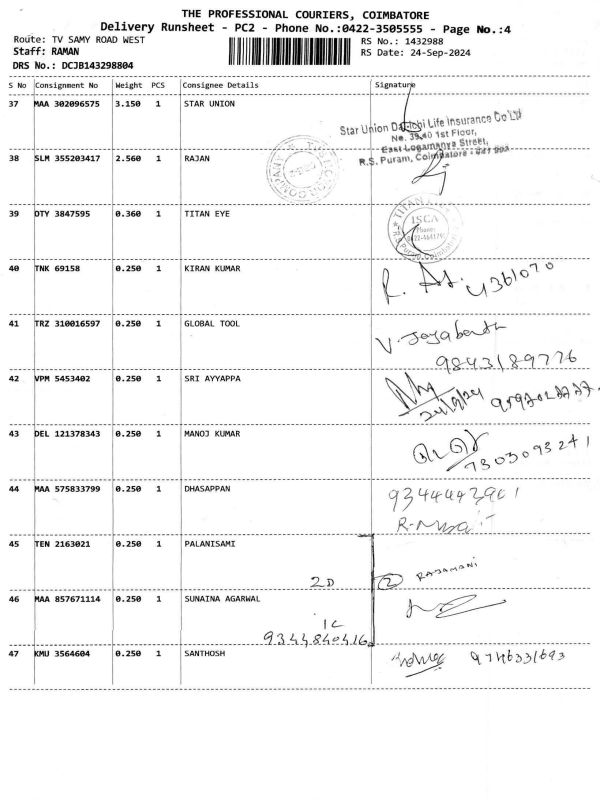 THE PROFESSIONAL COURIERS, COIMBATORE
Delivery Runsheet - PC2 - Phone No.:0422-3505555 - Page No.:4
Route: TV SAMY ROAD WEST
RS No.: 1432988
Staff: RAMAN
RS Date: 24-Sep-2024
DRS No.: DCJB143298804
S No Consignment No Weight PCS Consignee Details Signature
37 MAA 302096575 3.150 1 STAR UNION
Star Union Dai-ichi Life Insurance Co Ltd
No. 39,40 1st Floor,
East Logamanya Street,
R.S. Puram, Coimbatore - 641 002
38 SLM 355203417 2.560 1 RAJAN
39 DTY 3847595 0.360 1 TITAN EYE
TITAN
ISCA
Phone:
R.S. Puram, Coimbatore
40 TNK 69158 0.250 1 KIRAN KUMAR
41 TRZ 310016597 0.250 1 GLOBAL TOOL
9843189776
42 VPM 5453402 0.250 1 SRI AYYAPPA
24/9/24
43 DEL 121378343 0.250 1 MANOJ KUMAR
7303093241
44 MAA 575833799 0.250 1 DHASAPPAN
45 TEN 2163021 0.250 1 PALANISAMI
2D 2 RAJAMANI
46 MAA 857671114 0.250 1 SUNAINA AGARWAL
1C
9344840416
47 KMU 3564604 0.250 1 SANTHOSH
9746331693